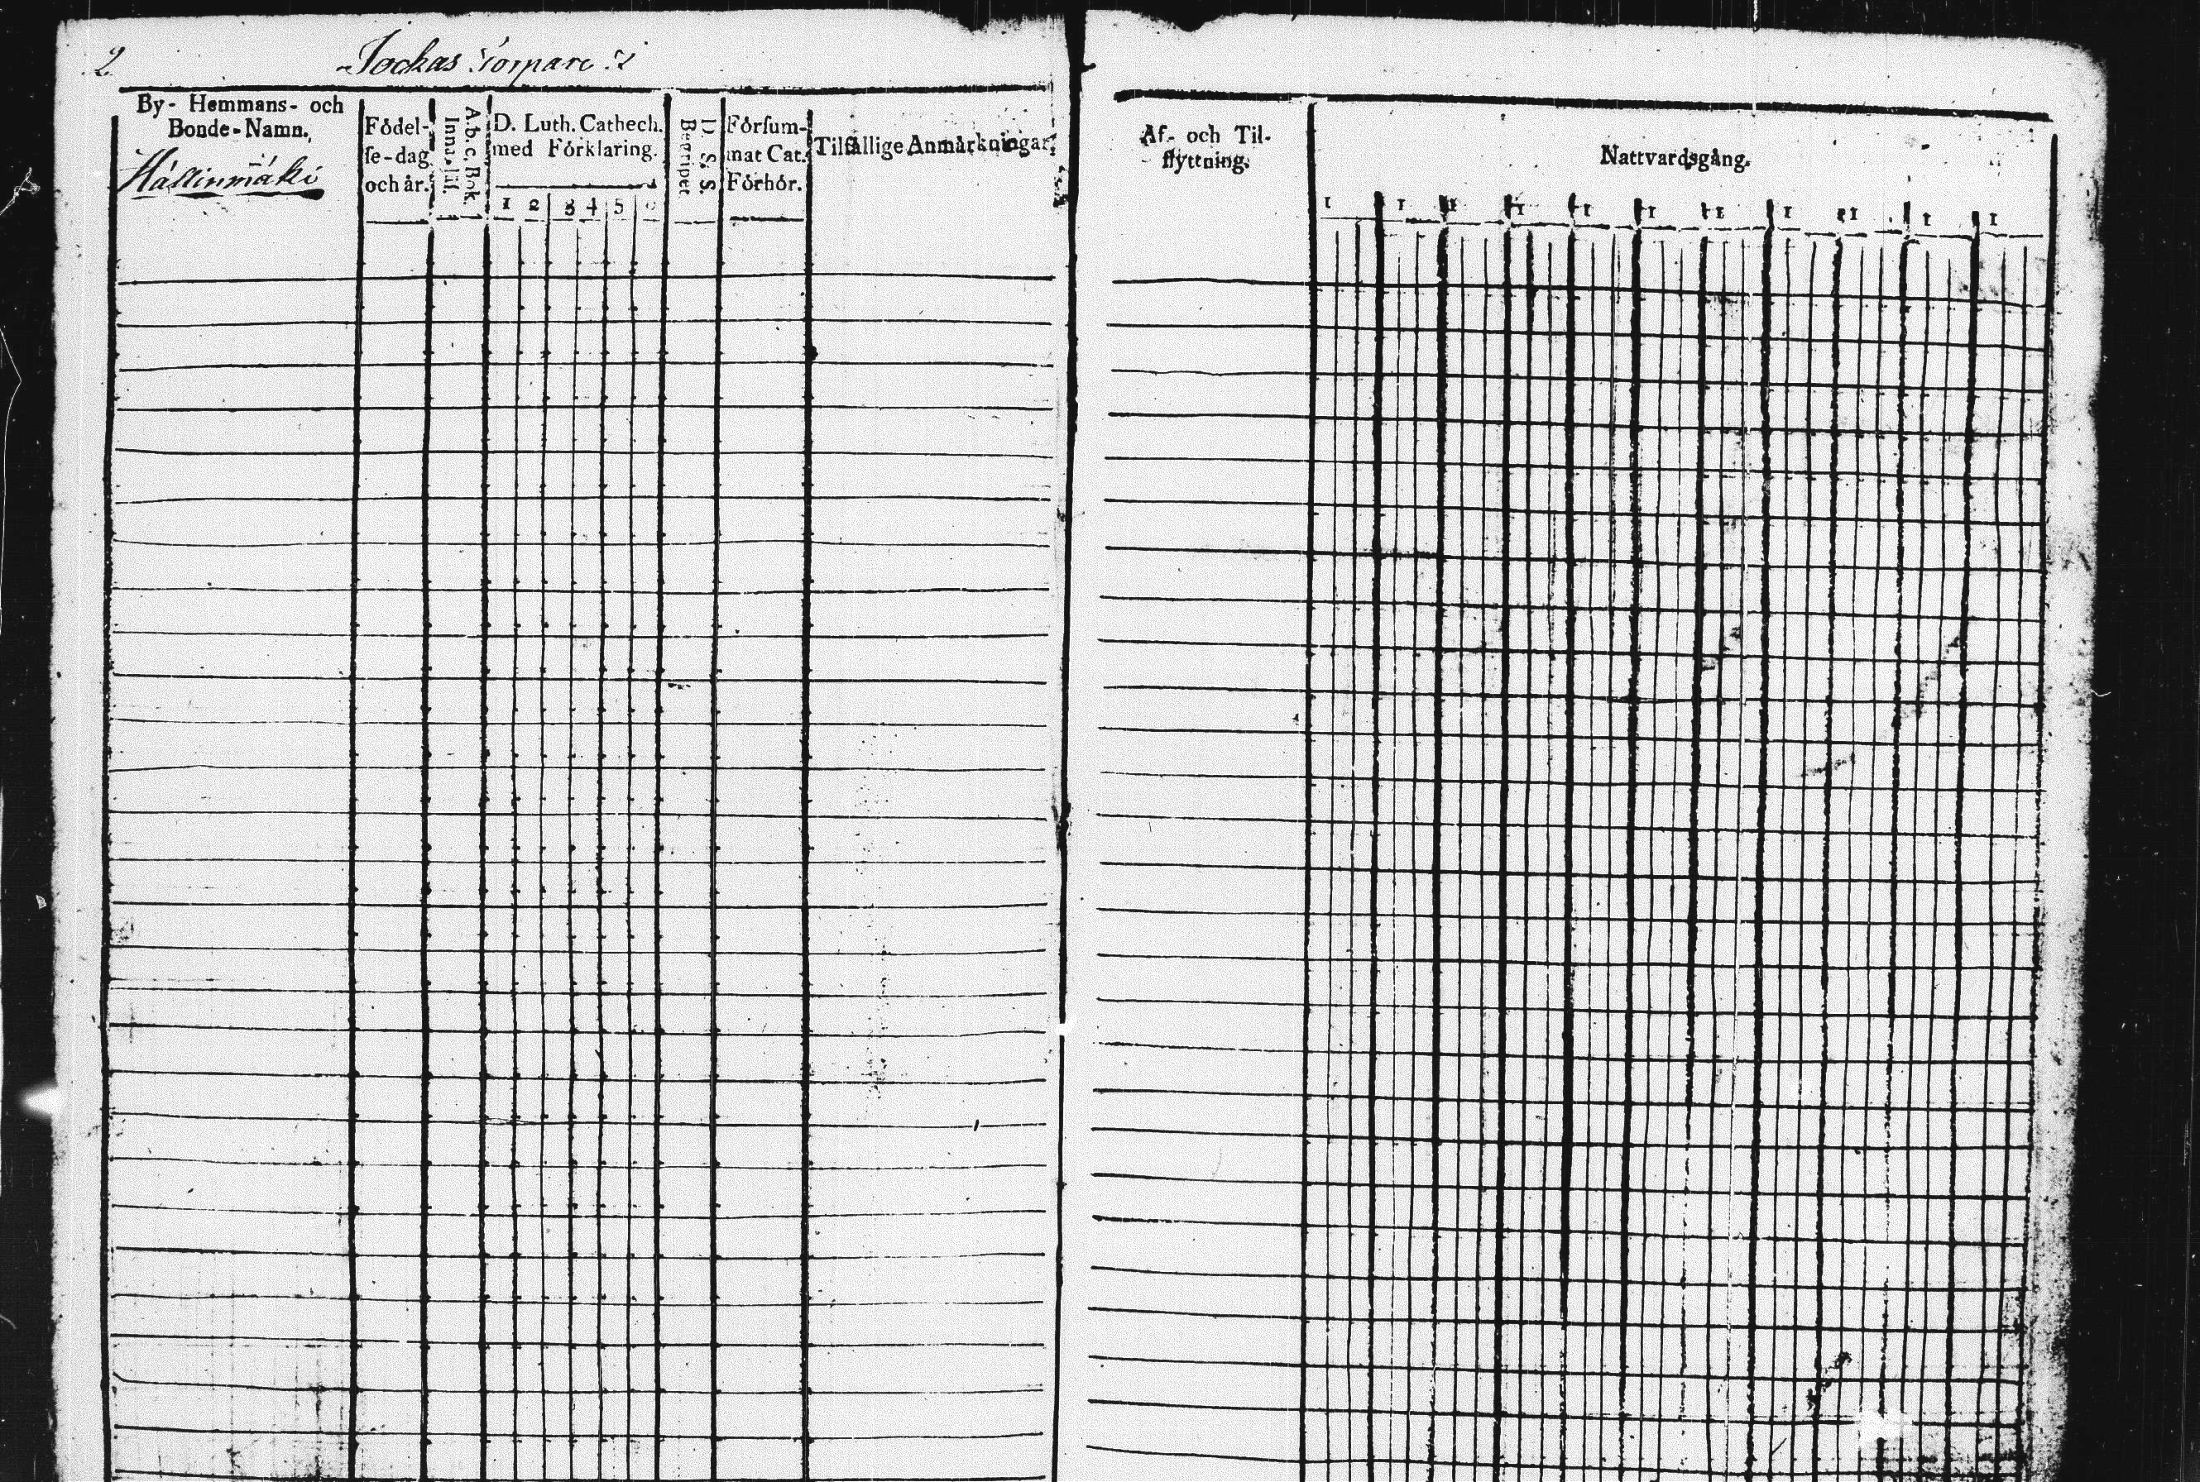 2
Jockas Torpare
By- Hemmans- och
Bonde-Namn.
Hällinmäki
Födel-
se-dag
och år.
A.b.c. Bok.
Innanläs.
D. Luth. Cathech.
med Förklaring.
1 2 3 4 5 6
D. S. S.
Begripet
Försum-
mat Cat.
Förhör.
Tilfällige Anmärkningar.
Af- och Til-
flyttning.
Nattvardsgång.
1 1 1 1 1 1 1 1 1 1 1